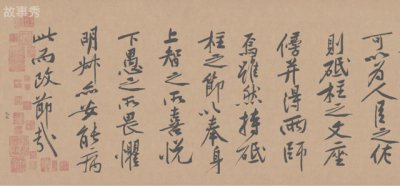 故事秀
可以為人臣之佐
則砥柱之文座
傍并得兩師
焉雖然持砥
柱之節以奉身
上智之所喜悅
下愚之所畏懼
明叔亦安能病
此而改節哉